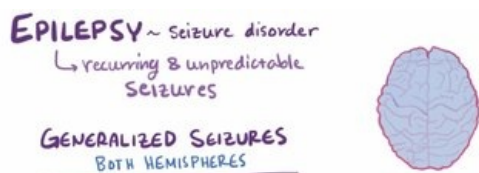 EPILEPSY ~ Seizure disorder
↳ recurring & unpredictable
Seizures
GENERALIZED SEIZURES
BOTH HEMISPHERES